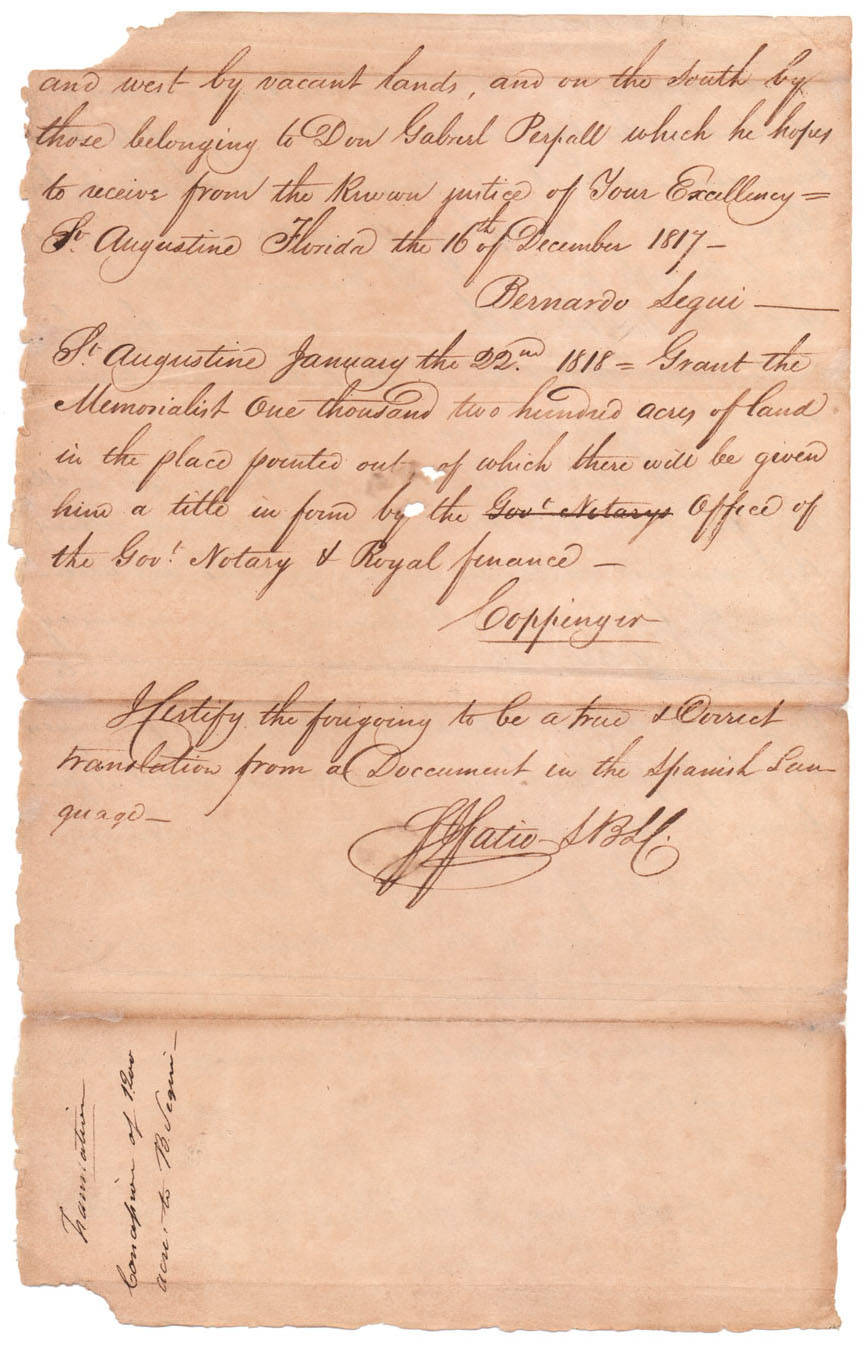 and west by vacant lands, and on the south by
those belonging to Don Gabriel Perpall which he hopes
to receive from the known justice of Your Excellency =
St. Augustine Florida the 16th of December 1817 —
Bernardo Segui —
St. Augustine January the 22nd. 1818 = Grant the
Memorialist One thousand two hundred acres of land
in the place pointed out of which there will be given
him a title in form by the Govt Notarys Office of
the Govt. Notary & Royal finance —
Coppinger
I Certify the forigoing to be a true & Correct
translation from a Doccument in the Spanish Lan
guage —
FJ Fatio SBLC.
Translation
Concession of 1200
acres to B. Segui —